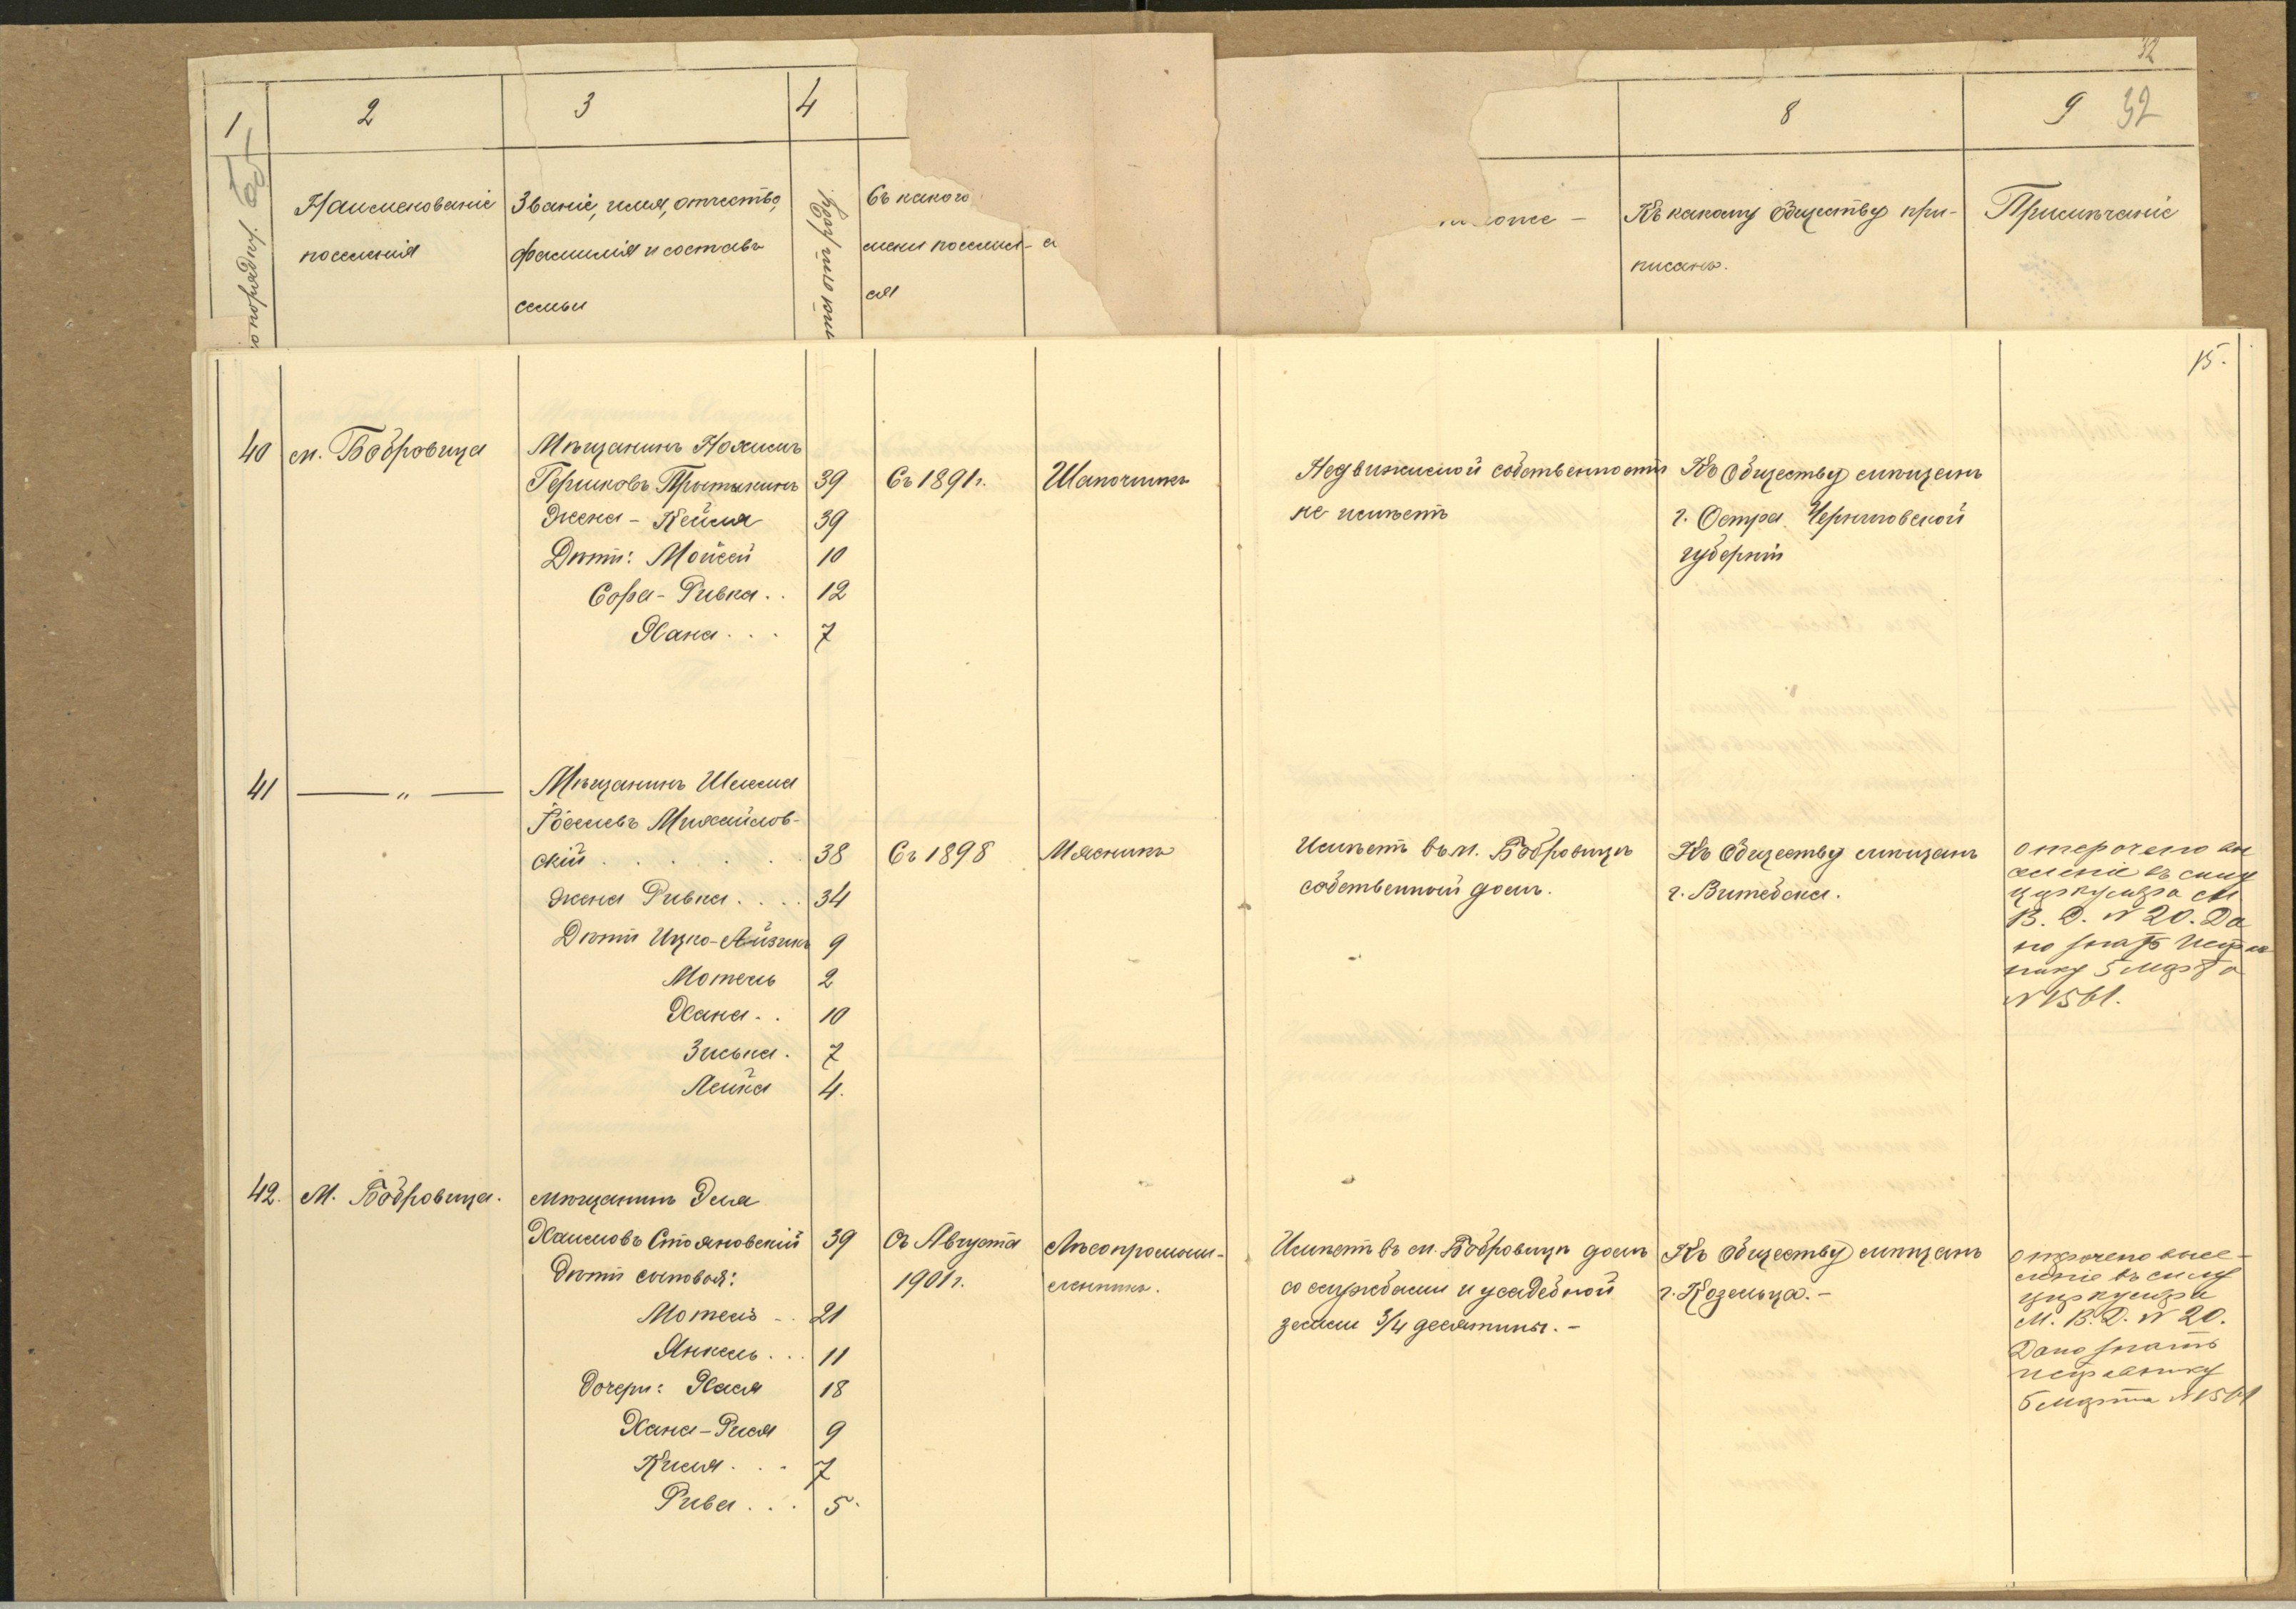 32
1 2 3 4 8 9 32
Наименованіе
поселенія
Званіе, имя, отчество,
фамилія и составъ
семьи
Съ какого
мени поселил-
ся
Къ какому Обществу при-
писанъ.
Примѣчаніе
15.
40 м. Бобровица
Мѣщанинъ Нохимъ
Гершковъ 39 Съ 1891 г. Шапочникъ
Жена - Кейля 39
Дѣти: Мойсей 10
Сора-Ривка . . 12
Хана . . . 7
Недвижимой собственности
не имѣетъ
Къ Обществу мѣщанъ
г. Остра Черниговской
губерніи
41 — „ —
Мѣщанинъ Шлема
Михайлов-
скій . . . . . 38 Съ 1898 Мясникъ
жена Ривка . . . . 34
Дѣти Ицко-Айзикъ 9
Мотель 2
Хана . . 10
Зиська . 7
Лейка 4.
Имѣетъ въ м. Бобровицѣ
собственный домъ.
Къ Обществу мѣщанъ
г. Витебска.
отсрочено вы
селеніе въ силу
циркуляра М.
В. Д. № 20. Да
но знать Исправ
нику 5 Марта
№ 1561.
42. М. Бобровица.
мѣщанинъ Эля
Хаимовъ Стояновскій 39 Съ Августа
1901 г. Лѣсопромыш-
ленникъ.
Дѣти сыновья:
Мотель - . 21
Янкель . . . 11
Дочери: Хася 18
Хана-Рися 9
Киля . . . 7
Рива . . . 5.
Имѣетъ въ м. Бобровицѣ домъ
со службами и усадебной
земли 3/4 десятины. —
Къ Обществу мѣщанъ
г. Козельца. —
отсрочено высе-
леніе въ силу
циркуляра
М. В. Д. № 20.
Дано знать
исправнику
5 Марта № 1561